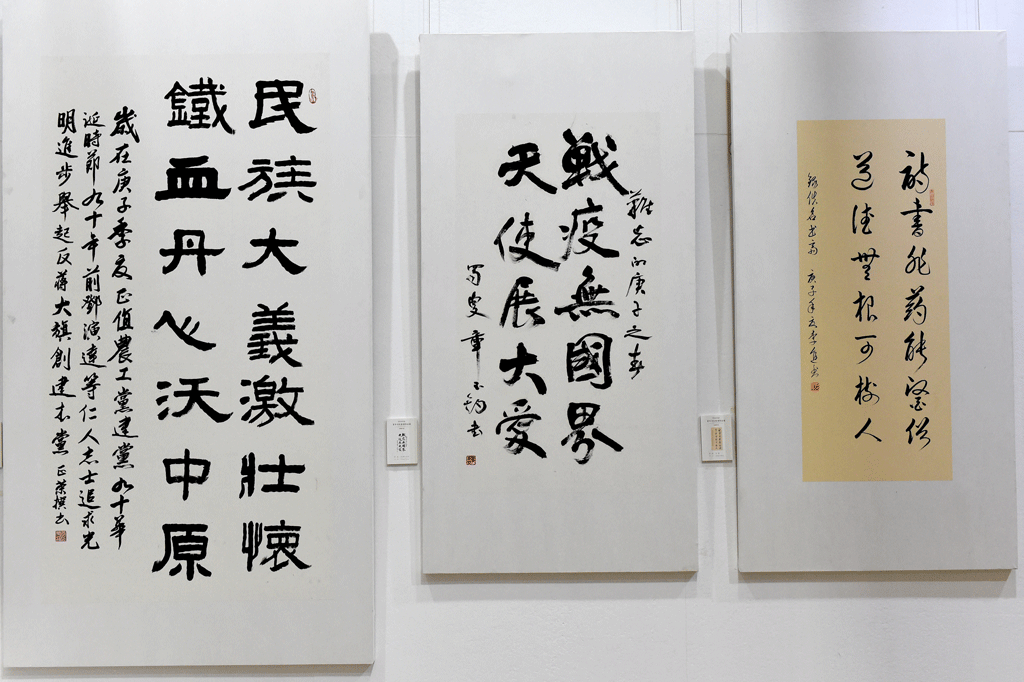 民族大義激壯懷
鐵血丹心沃中原
歲在庚子季夏正值農工黨建黨九十華
延時節九十年前鄧演達等仁人志士追求光
明進步舉起反蔣大旗創建本黨 正榮撰書
戰疫無國界
天使展大愛
難忘的庚子之春
蜀叟章玉鈞書
詩書非药能醫俗
道德無根可樹人